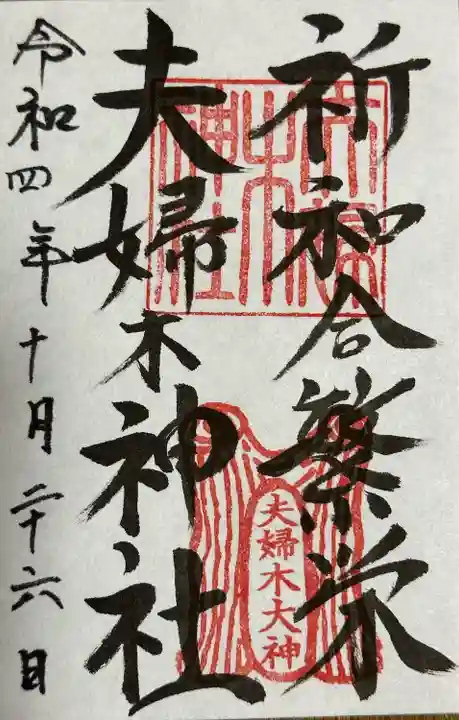 祈和合繁栄
夫婦木神社
令和四年十月二十六日
夫婦木神社
夫婦木大神